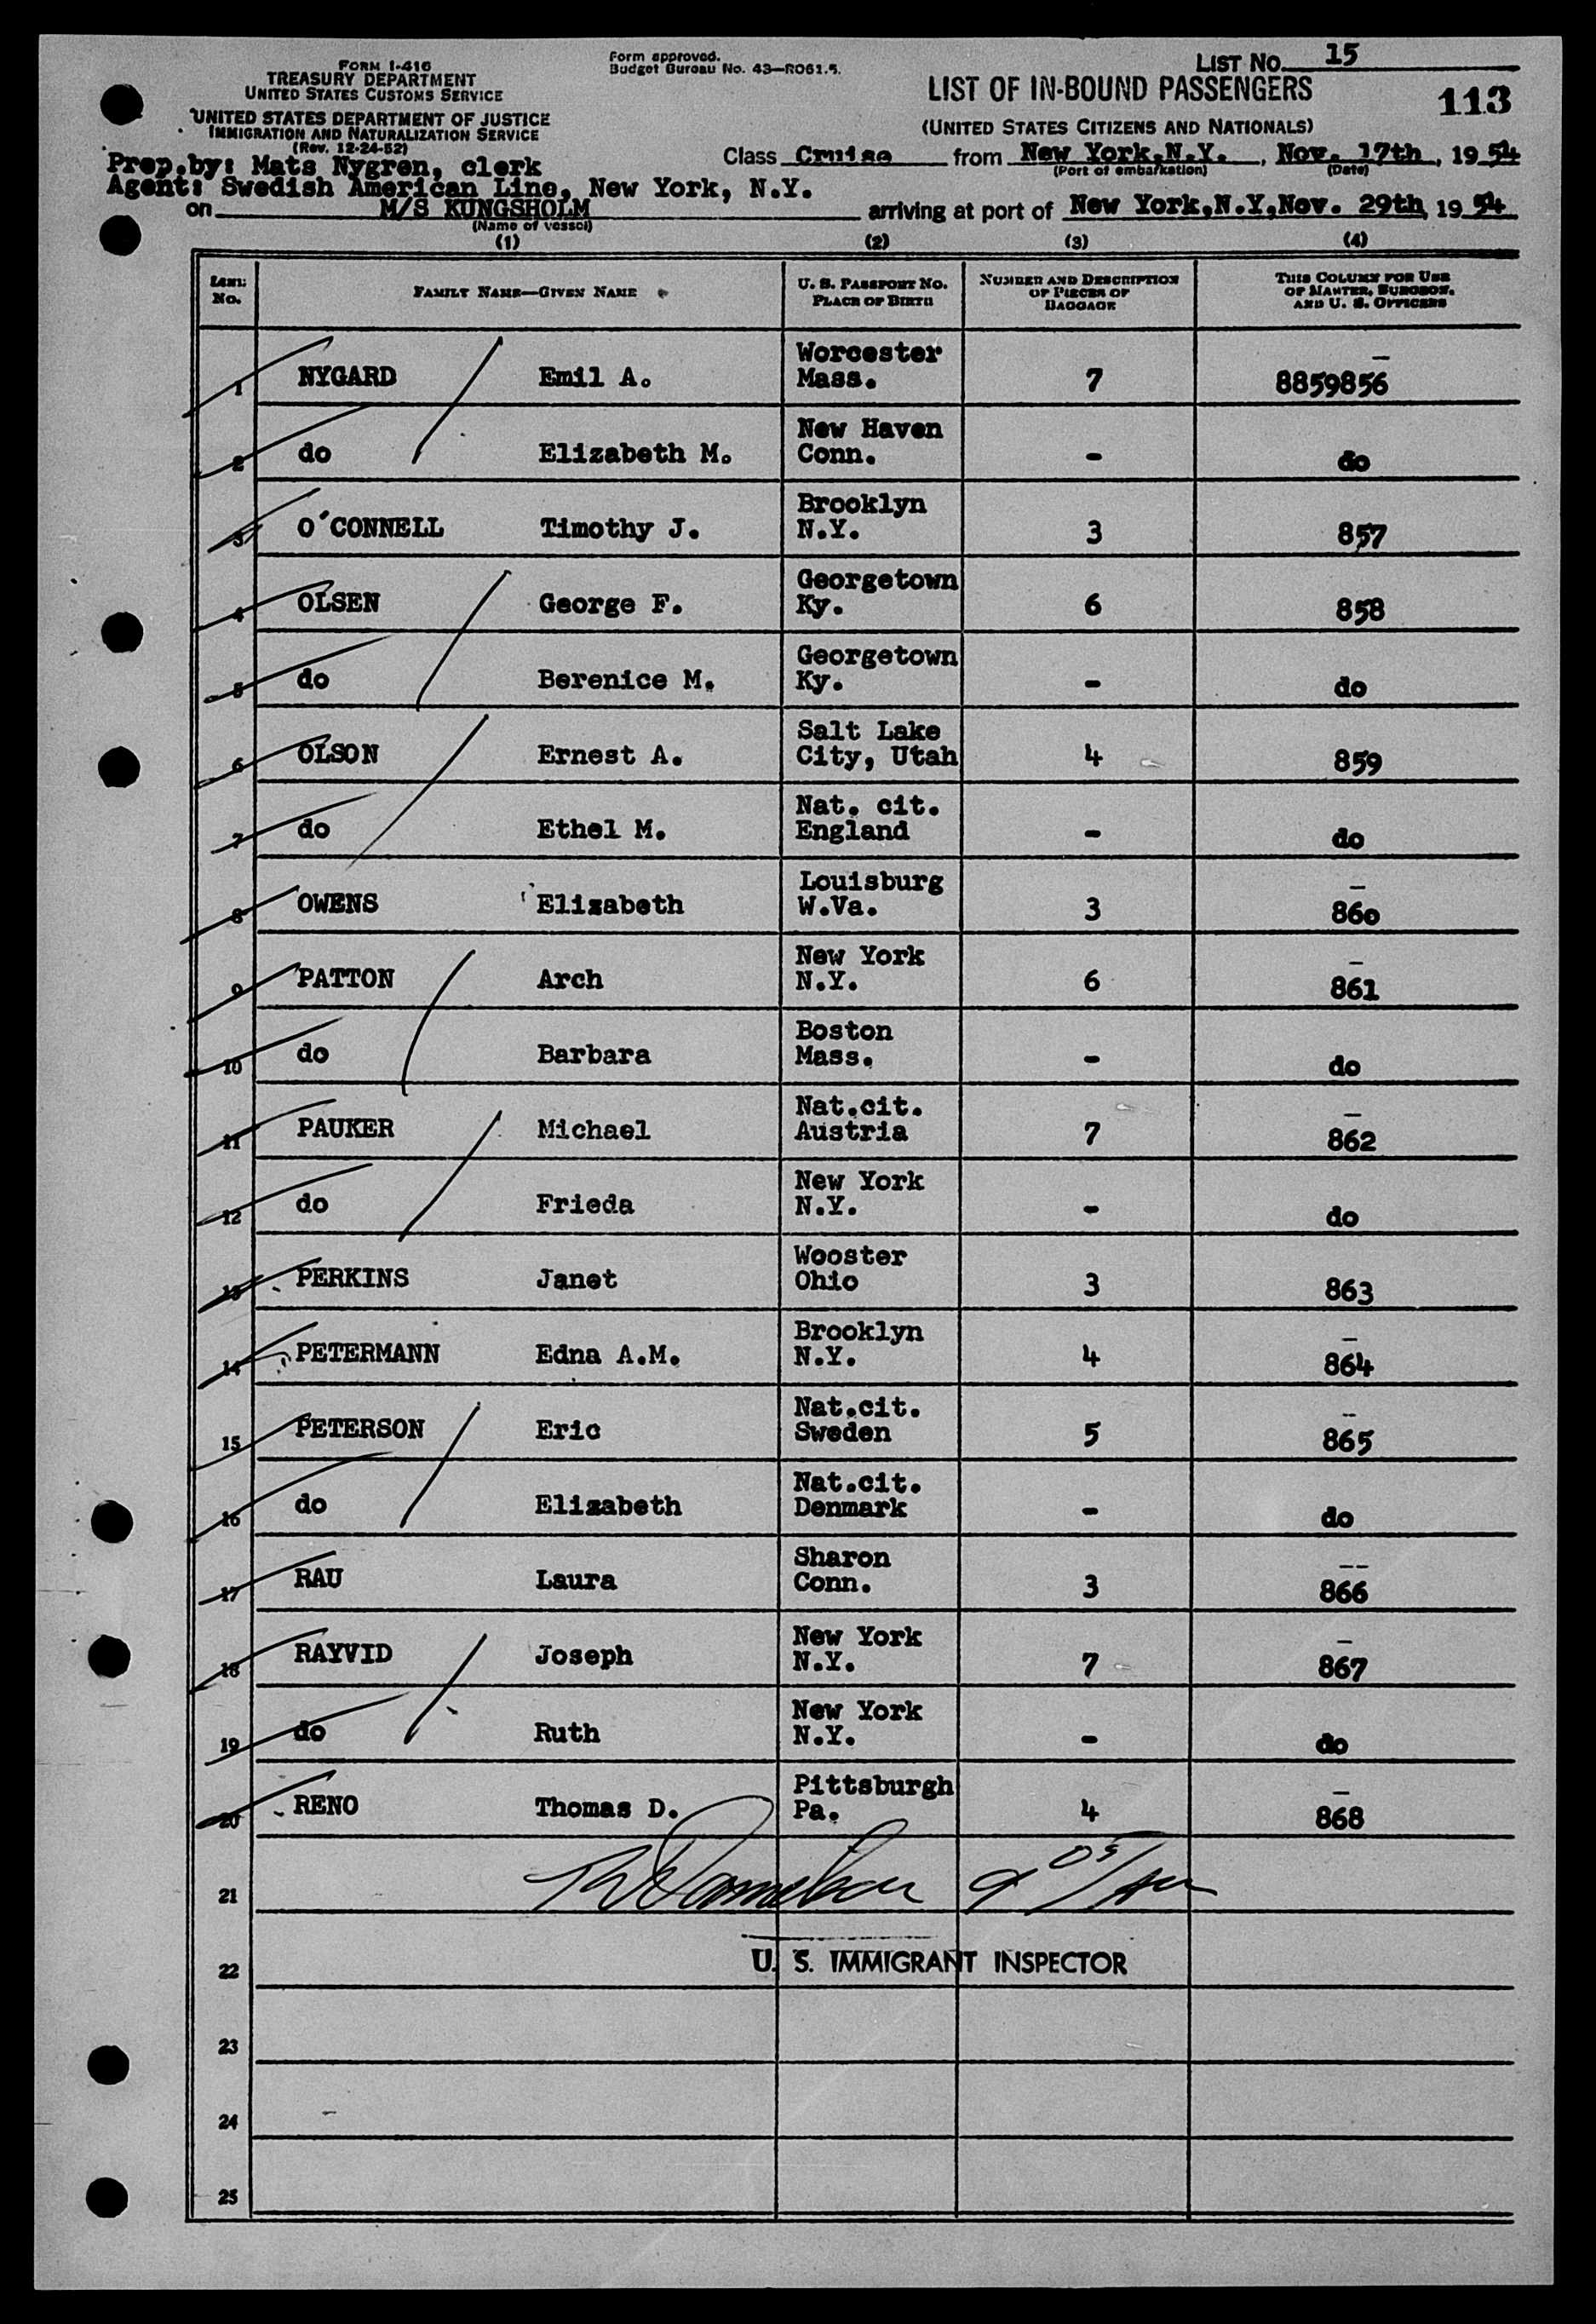 FORM I-416
TREASURY DEPARTMENT
UNITED STATES CUSTOMS SERVICE
UNITED STATES DEPARTMENT OF JUSTICE
IMMIGRATION AND NATURALIZATION SERVICE
(Rev. 12-24-52)
Form approved.
Budget Bureau No. 43—R061.5.
LIST NO. 15
LIST OF IN-BOUND PASSENGERS
113
(UNITED STATES CITIZENS AND NATIONALS)
Prep.by: Mats Nygren, clerk
Agent: Swedish American Line, New York, N.Y.
Class Cruise from New York,N.Y., Nov. 17th, 1954
(Port of embarkation) (Date)
on M/S KUNGSHOLM arriving at port of New York,N.Y,Nov. 29th, 1954
(Name of vessel)
(1) (2) (3) (4)
LINE No. FAMILY NAME—GIVEN NAME U. S. PASSPORT NO. PLACE OF BIRTH NUMBER AND DESCRIPTION OF PIECES OF BAGGAGE THIS COLUMN FOR USE OF MASTER, SURGEON, AND U. S. OFFICERS
1 NYGARD Emil A. Worcester Mass. 7 8859856
2 do Elizabeth M. New Haven Conn. - do
3 O'CONNELL Timothy J. Brooklyn N.Y. 3 857
4 OLSEN George F. Georgetown Ky. 6 858
5 do Berenice M. Georgetown Ky. - do
6 OLSON Ernest A. Salt Lake City, Utah 4 859
7 do Ethel M. Nat. cit. England - do
8 OWENS Elizabeth Louisburg W.Va. 3 860
9 PATTON Arch New York N.Y. 6 861
10 do Barbara Boston Mass. - do
11 PAUKER Michael Nat.cit. Austria 7 862
12 do Frieda New York N.Y. - do
13 PERKINS Janet Wooster Ohio 3 863
14 PETERMANN Edna A.M. Brooklyn N.Y. 4 864
15 PETERSON Eric Nat.cit. Sweden 5 865
16 do Elizabeth Nat.cit. Denmark - do
17 RAU Laura Sharon Conn. 3 866
18 RAYVID Joseph New York N.Y. 7 867
19 do Ruth New York N.Y. - do
20 RENO Thomas D. Pittsburgh Pa. 4 868
21
22 U. S. IMMIGRANT INSPECTOR
23
24
25